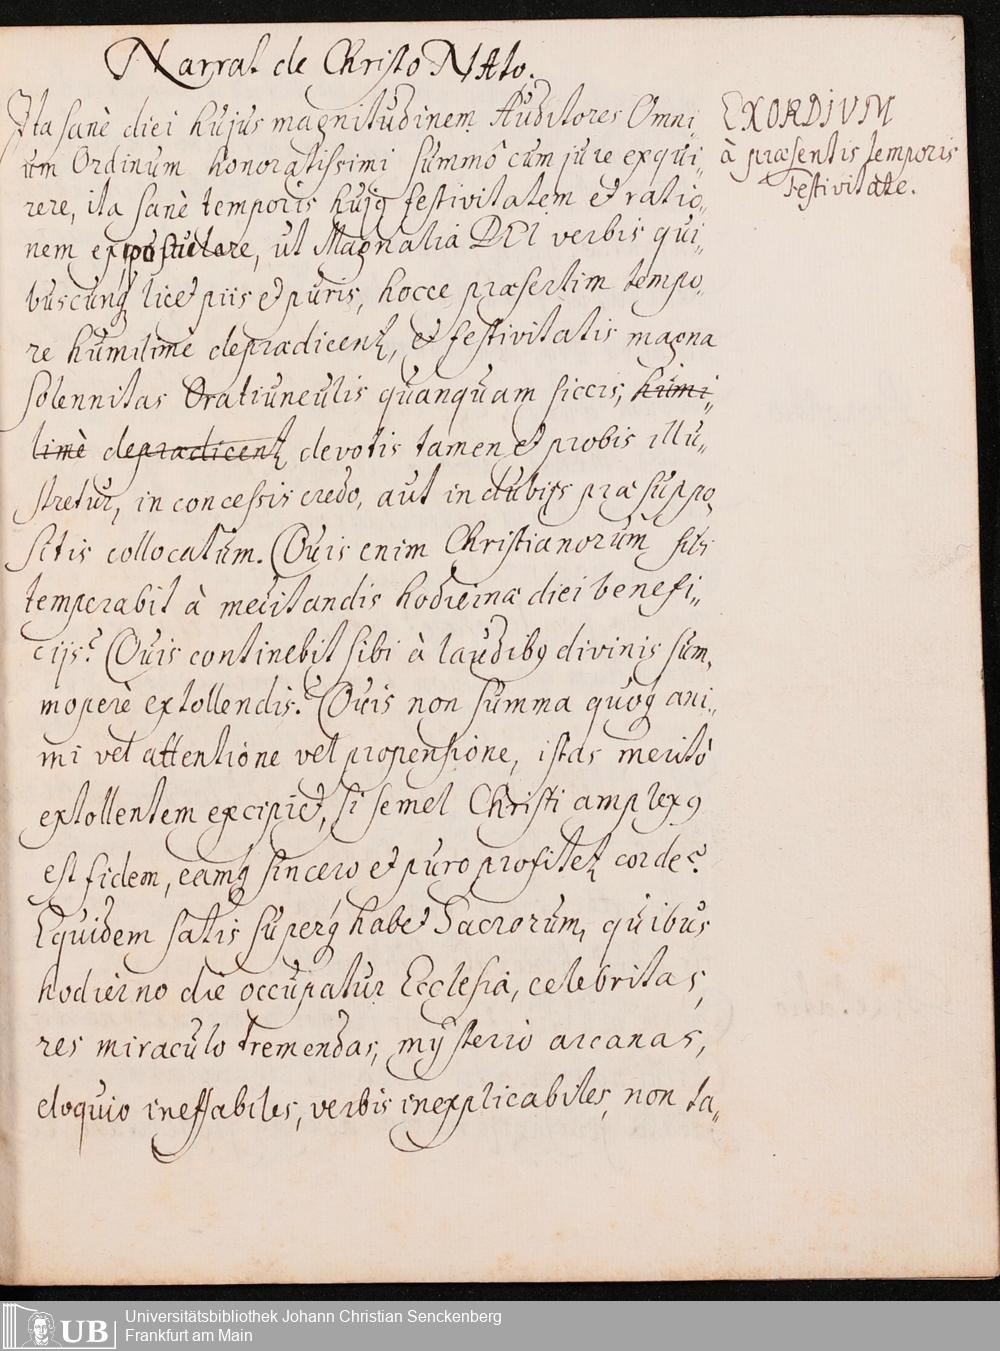 Narrat de Christo NAto.
Ita sanè diei hujus magnitudinem Auditores Omni„
um Ordinum honoratissimi summô cum jure exqui„
rere, ita sanè temporis hujq festivitatem et ratio„
nem expostulare, ut Magnalia DEI verbis qui„
buscunq licet piis et puris, hocce præsertim tempo„
re humilimè deprædicentr, et festivitatis magna
Solennitas Oratiunculis quanquam siccis, humi„
limè deprædicentr devotis tamen et probis illu„
stretur, in concessis credo, aut in dubijs præsuppo„
sitis collocatum. Quis enim Christianorum sibi
temperabit à meditandis hodiernæ diei benefi„
cijs? Quis continebit sibi à laudibq divinis sum„
moperè extollendis? Quis non summa quoq ani„
mi vel attentione vel propensione, istas meritò
extollentem excipiet, si semel Christi amplexq
est fidem, eamq sincero et puro profitetr corde?
Equidem satis superq habet Sacrorum, quibus
hodierno die occupatur Ecclesia, celebritas,
res miraculo tremendas, mysterio arcanas,
eloquio ineffabiles, verbis inexplicabiles, non ta„
EXORDIUM
à præsentis temporis
Festivitate.
UB
Universitätsbibliothek Johann Christian Senckenberg
Frankfurt am Main